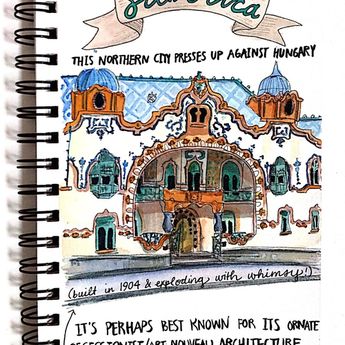 THIS NORTHERN CITY PRESSES UP AGAINST HUNGARY
(built in 1904 & exploding with whimsy!)
IT'S PERHAPS BEST KNOWN FOR ITS ORNATE
SECESSIONIST/ART NOUVEAU ARCHITECTURE